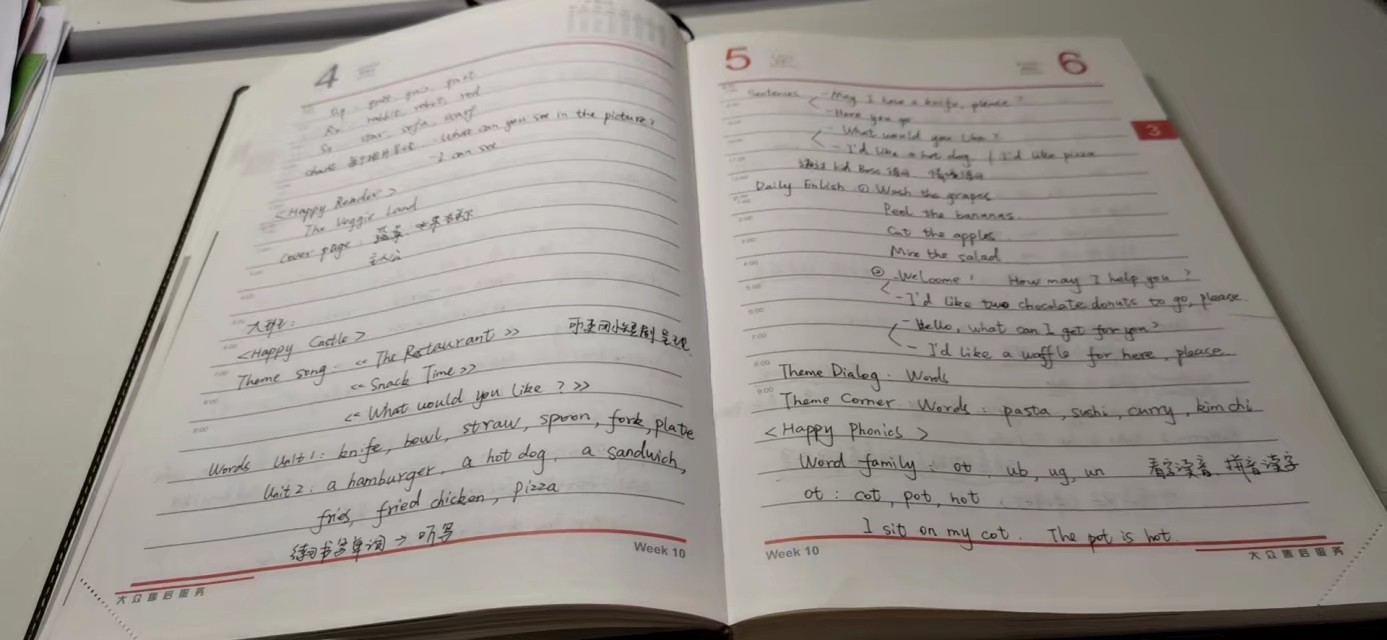 4
goat
Rr rabbit, robot, red
Ss star sofa,
chant - What can you see in the picture?
- I can see
<Happy Reader>
The Veggie Land
Cover page:
主人公
大班:
<Happy Castle>
Theme song - << The Restaurant >>
<< Snack Time >>
<< What would you like ? >>
Words Unit 1: knife, bowl, straw, spoon, fork, plate
Unit 2: a hamburger, a hot dog, a sandwich,
fries, fried chicken, pizza
练习书写单词 → 听写
Week 10
大众售后服务
5
6
3
Sentences - May I have a knife, please?
- Here you go
- What would you like?
- I'd like a hot dog / I'd like pizza
Daily Enlish ① Wash the grapes
Peel the bananas
Cut the apples
Mix the salad
② - Welcome! How may I help you?
- I'd like two chocolate donuts to go, please.
- Hello, what can I get for you?
- I'd like a waffle for here, please
Theme Dialog. Words
Theme Corner Words: pasta, sushi, curry, kimchi
<Happy Phonics>
Word family: ot ub, ug, un 看字读音, 拼音读字
ot: cot, pot, hot
I sit on my cot. The pot is hot.
Week 10
大众售后服务